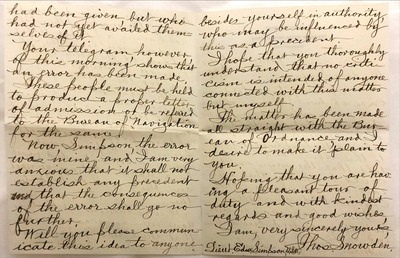 had been given but who
had not yet availed them-
selves of it.
Your telegram however
of this morning shows that
an error has been made.
These people must be held
to produce a proper letter
of admission or be referred
to the Bureau of Navigation
for the same.
Now, Simpson, the error
was mine, and I am very
anxious that it shall not
establish any precedent
and that the consequences
of the error shall go no
further.
Will you please commun-
icate this idea to anyone
besides yourself in authority,
who may be influenced by
this as a precedent.
I hope that you thoroughly
understand that no criti-
cism is intended of anyone
connected with this matter
but myself.
The matter has been made
all straight with the Bur-
eau of Ordnance and I
desire to make it plain to
you.
Hoping that you are hav-
ing a pleasant tour of
duty and with kindest
regards and good wishes,
I am, very sincerely yours,
Lieut Edw Simpson Thos Snowden.